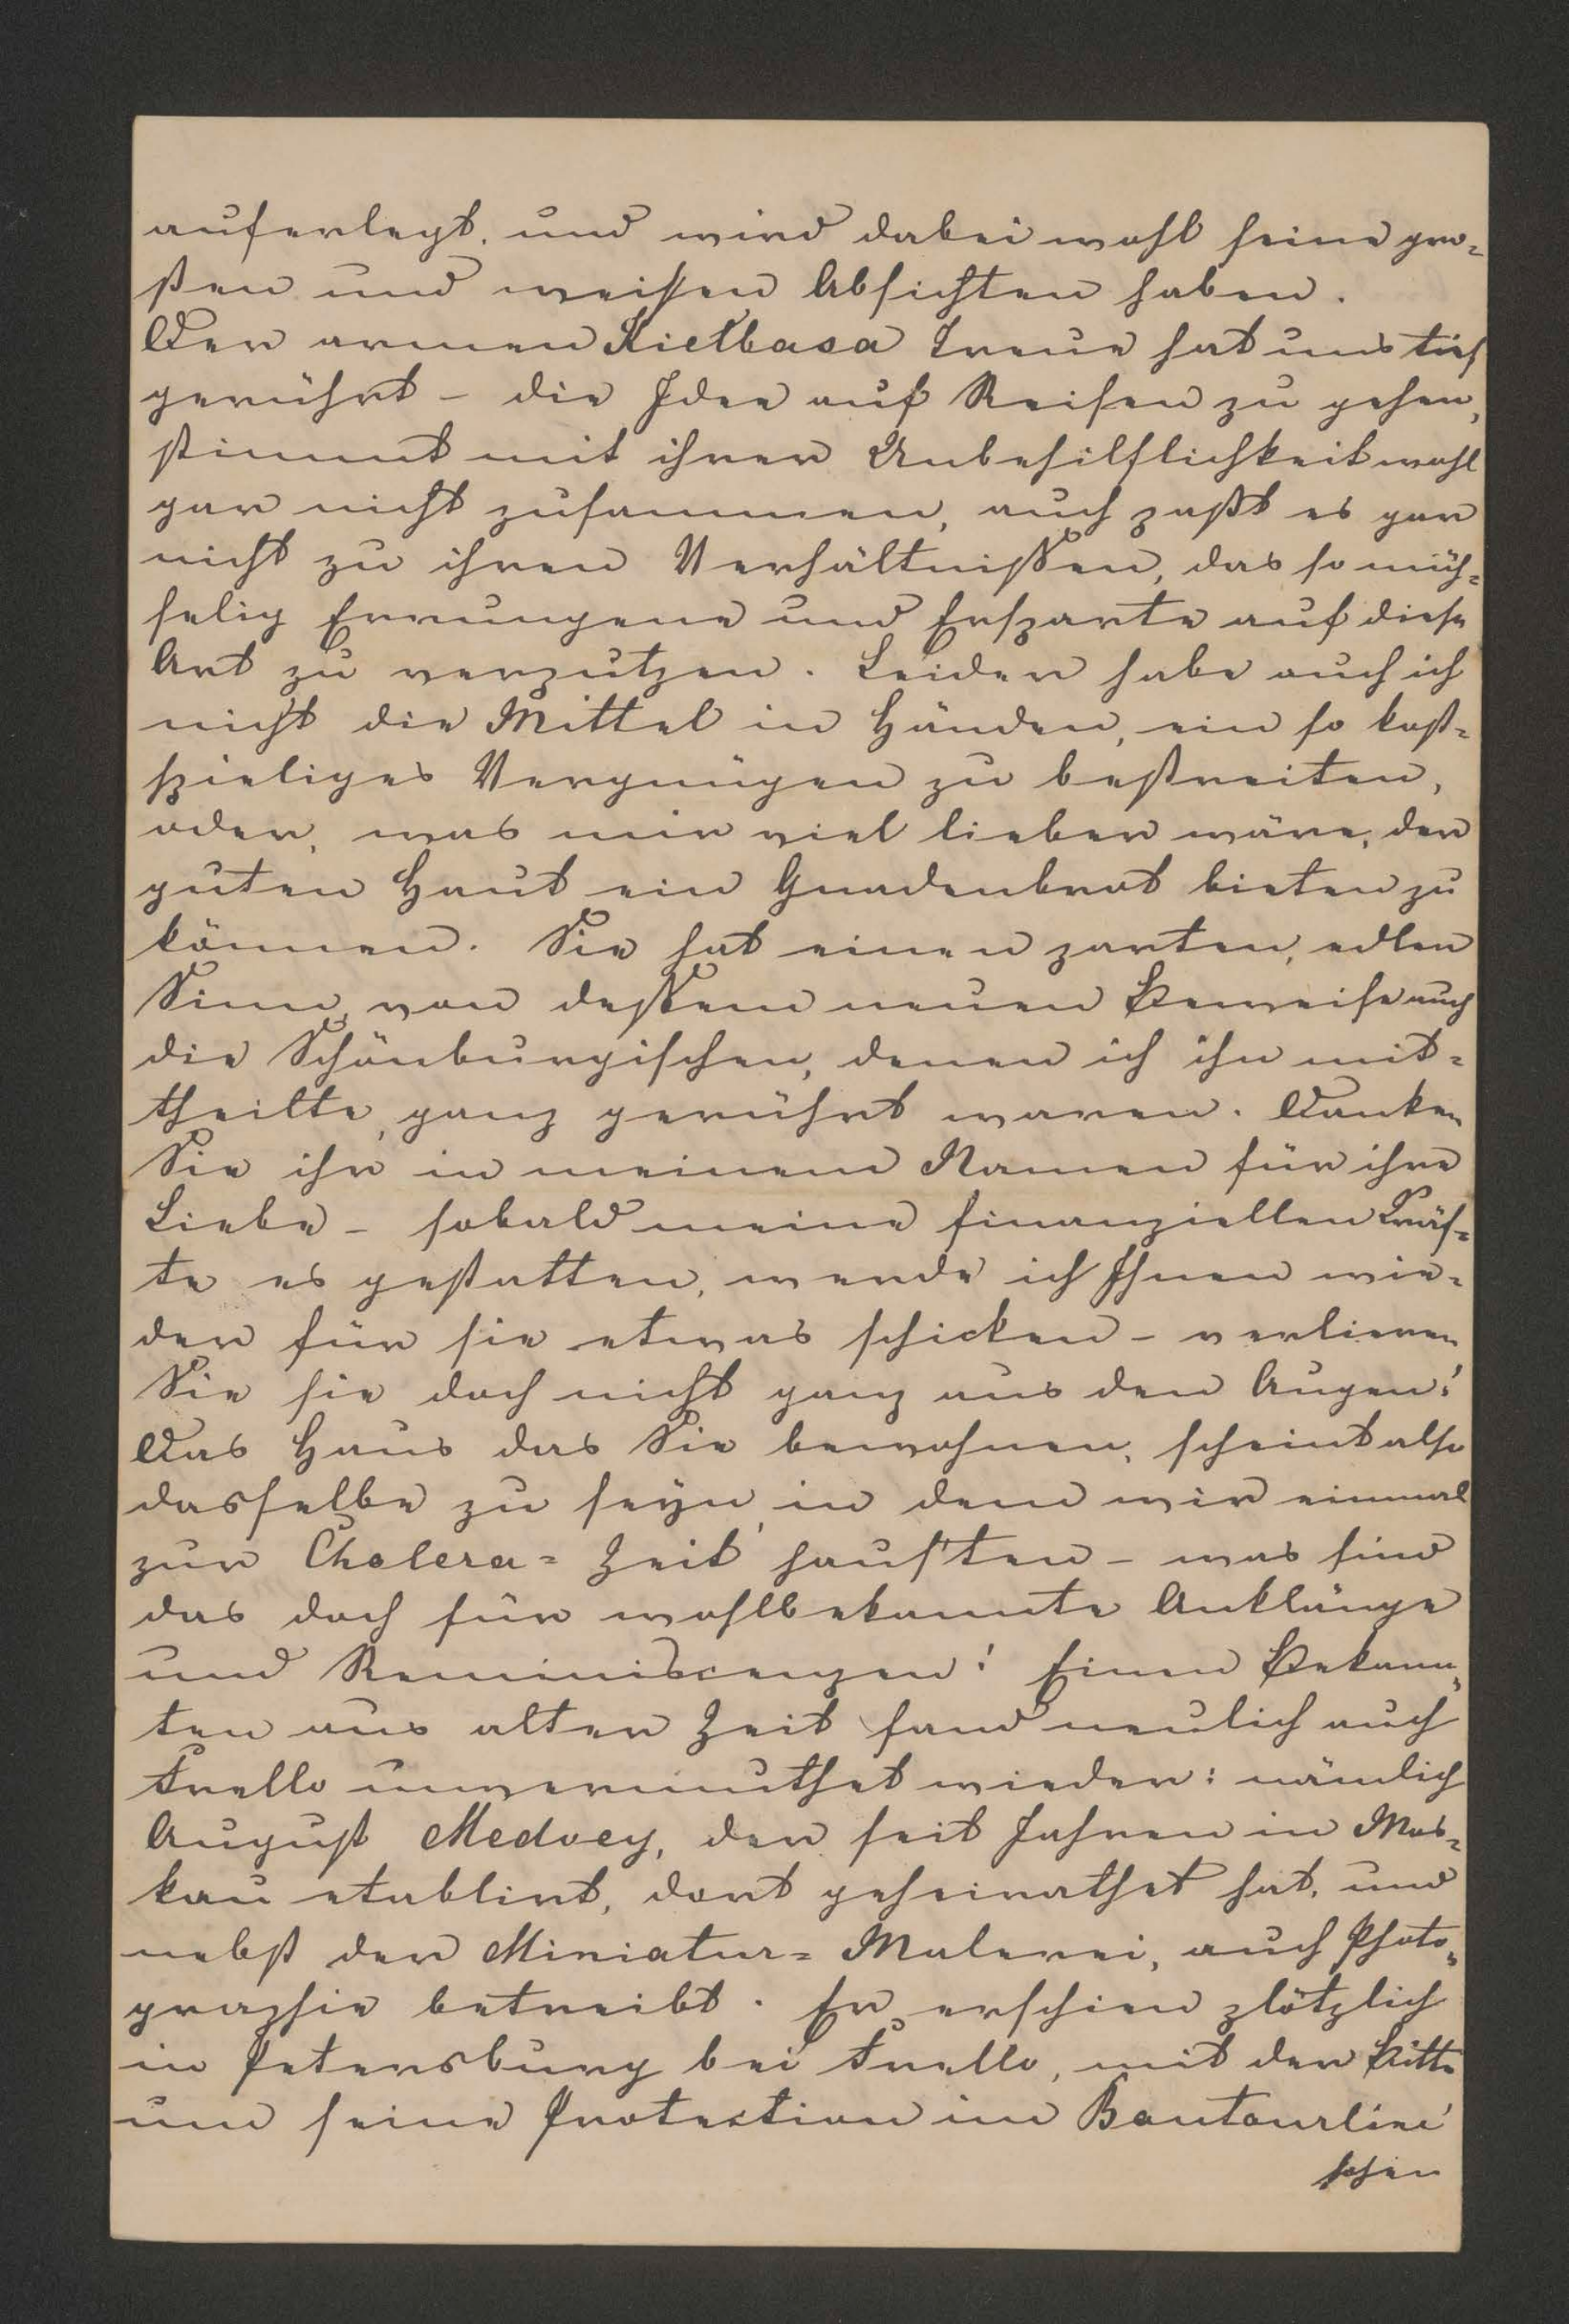 auferlegt, und wird dabei wohl seine gro-
ßen und weisen Absichten haben.
Der armen Kietbasa Treue hat uns tief
gerührt – die Idee auf Reisen zu gehen,
stimmt mit ihrer Unbehilflichkeit wohl
gar nicht zusammen, auch paßt es gar
nicht zu ihren Verhältnißen, das so müh-
selig Errungene und Ersparte auf diese
Art zu verputzen. Leider habe auch ich
nicht die Mittel in Händen, ein so kost-
spieliges Vergnügen zu bestreiten,
oder, was mir viel lieber wäre, der
guten Haut ein Gnadenbrot bieten zu
können. Sie hat einen zarten, edlen
Sinn, von deßem neuen Beweise auch
die Schönburgischen, denen ich ihn mit-
theilte, ganz gerührt waren. Danken
Sie ihr in meinem Namen für ihre
Liebe – sobald meine finanziellen Kräf-
te es gestatten, werde ich Ihnen wie-
der für sie etwas schicken – verlieren
Sie sie doch nicht ganz aus den Augen!
Das Haus das Sie bewohnen, scheint also
dasselbe zu seyn, in dem wir einmal
zur Cholera-Zeit haus'ten – was sind
das doch für wohlbekannte Anklänge
und Reminiscenzen! Einen Bekann-
ten aus alter Zeit fand neulich auch
Trello unvermuthet wieder: nämlich
August Medvey, der seit Jahren in Mos-
kau etablirt, dort geheirathet hat, und
nebst der Miniatur-Malerei, auch Photo-
graphie betreibt. Er erschien plötzlich
in Petersburg bei Trello, mit der Bitte
um seine Protection im Boutourlini
schen